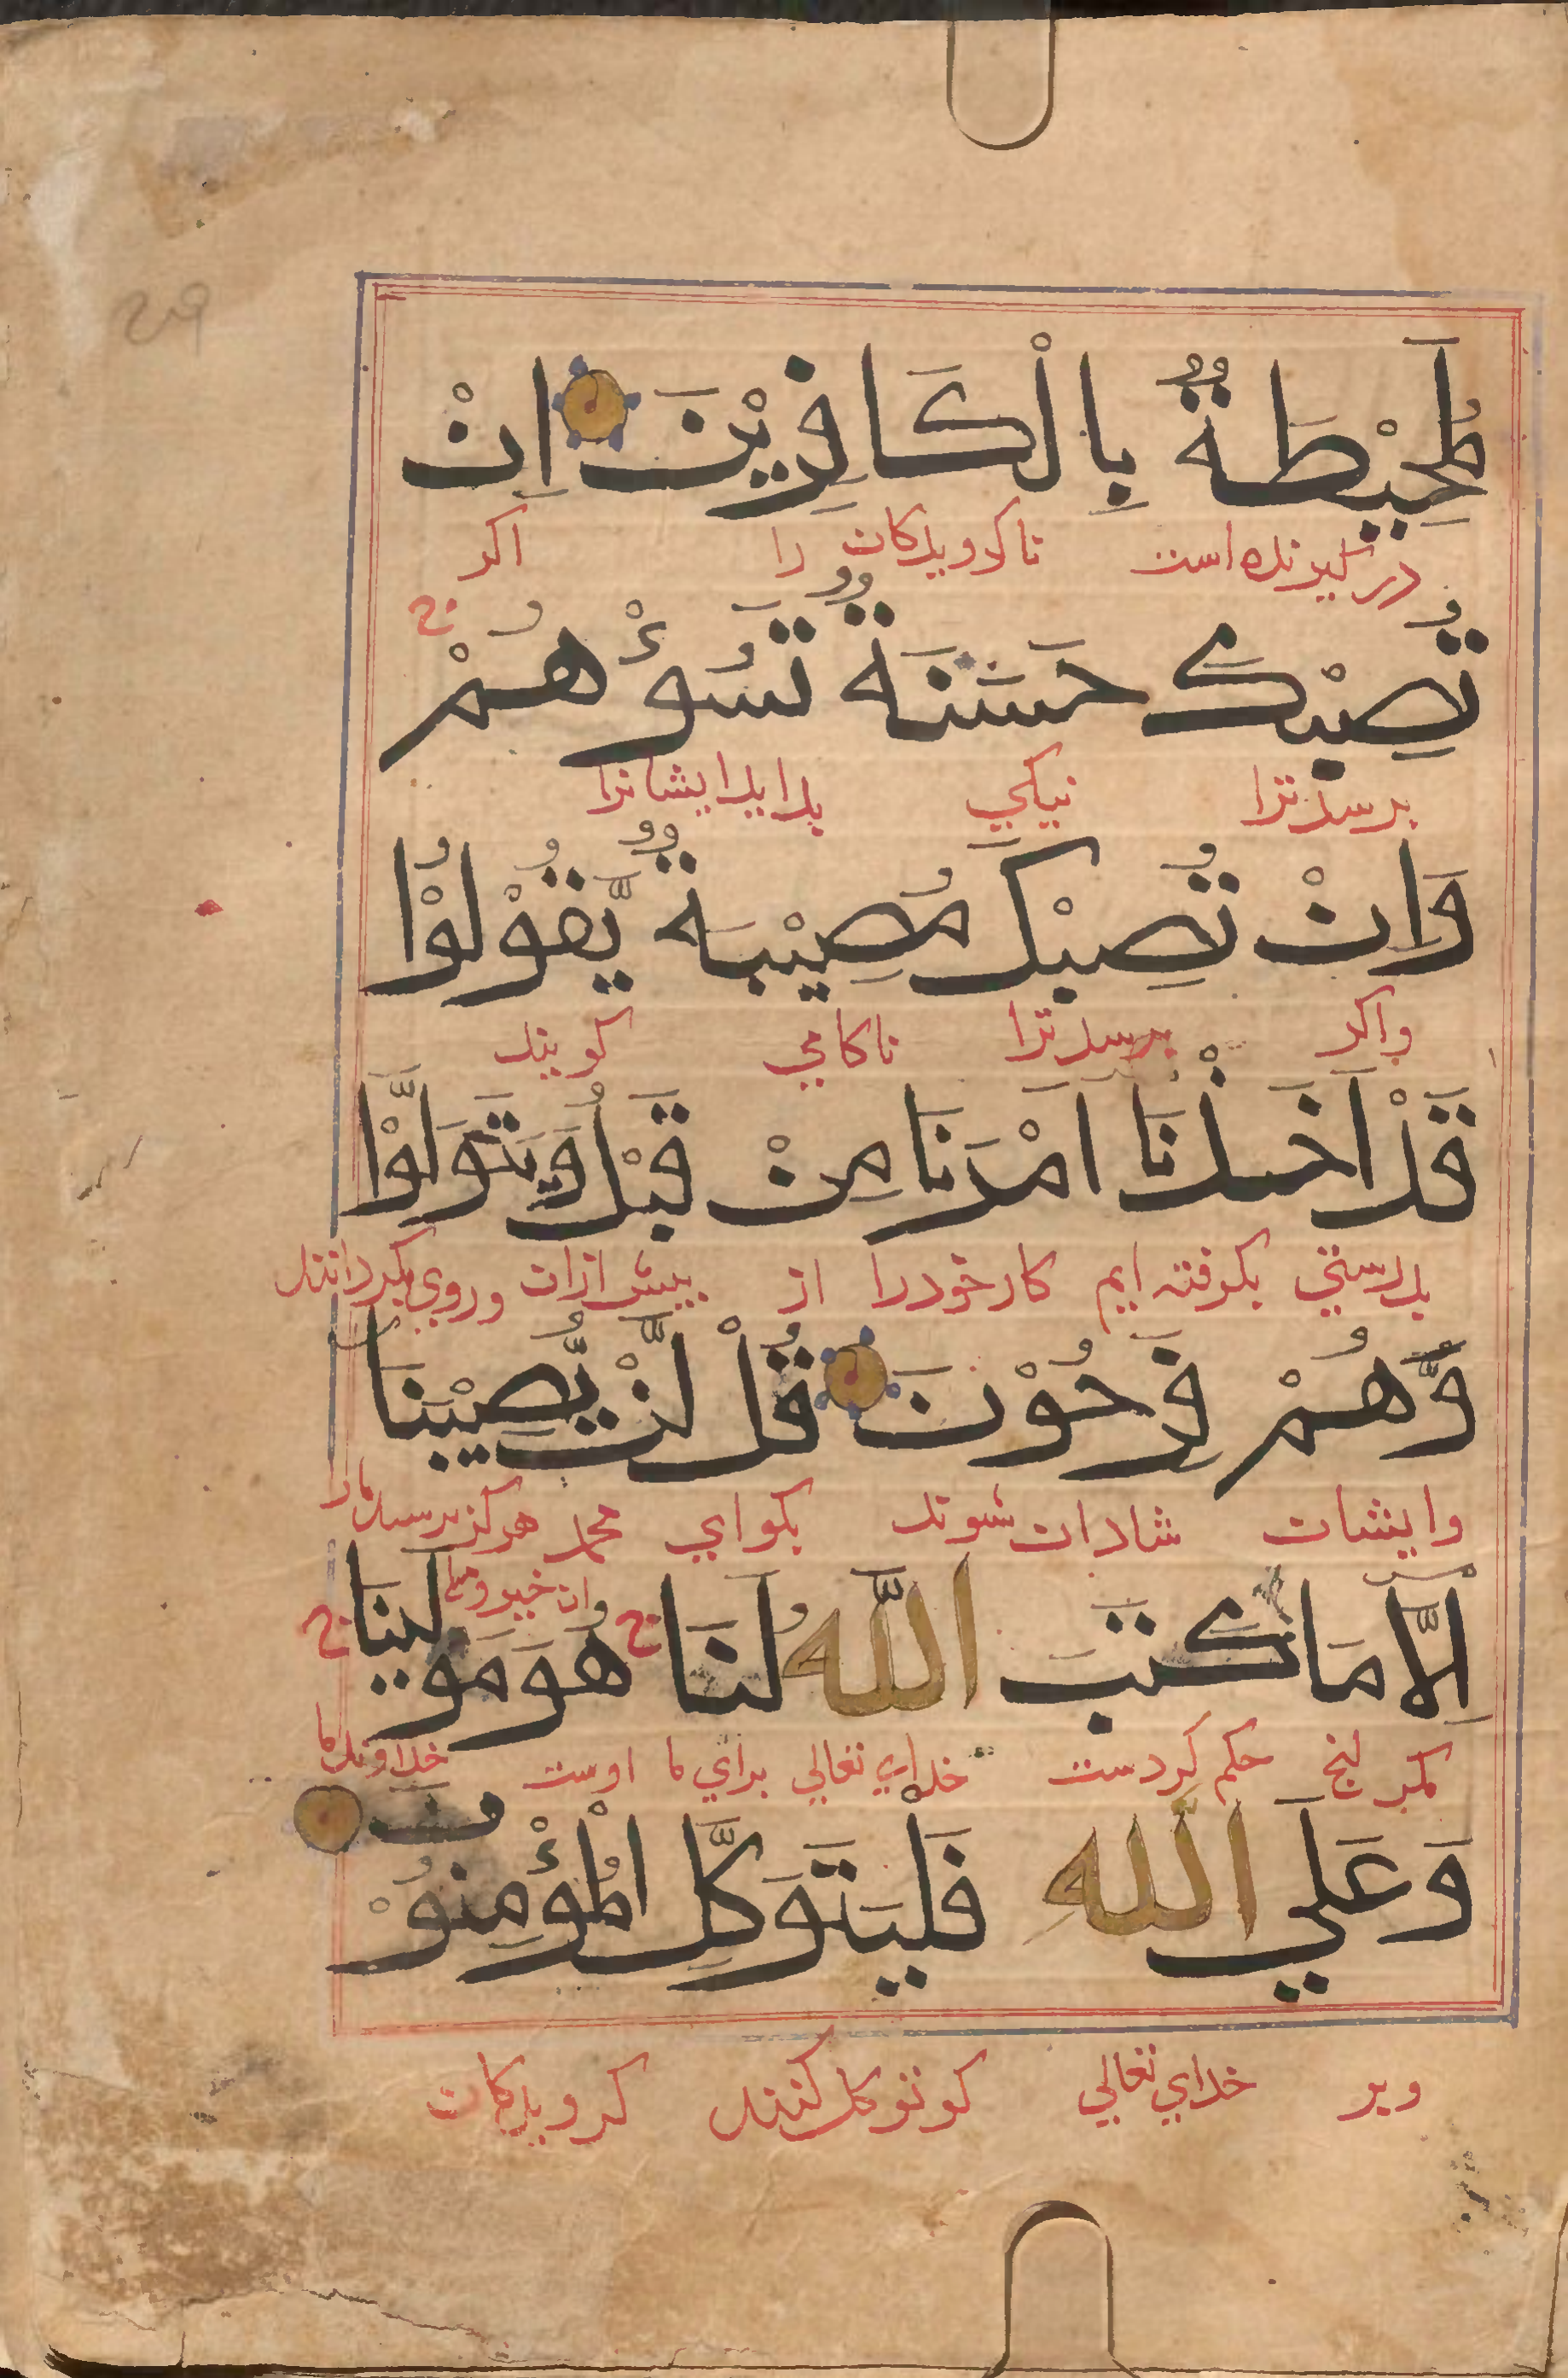 لَمُحِيْطَةٌ بِالْكَافِرِيْنَ اِنْ
در گیرنده است ناکرویدکان را اکر
تُصِبْكَ حَسَنَةٌ تَسُؤْهُمْ ج
برسد ترا نیکي بد اید ایشانرا
وَاِنْ تُصِبْكَ مُصِيْبَةٌ يَّقُوْلُوْا
واکر برسد ترا ناکامي کویند
قَدْ اَخَذْنَا اَمْرَنَا مِنْ قَبْلُ وَيَتَوَلَّوْا
بدرستي بکرفته ایم کار خود را از پیش ازان وروي بکردانند
وَّهُمْ فَرِحُوْنَ قُلْ لَّنْ يُّصِيْبَنَا
وایشان شادان شوند بکو اي محمد هرکز نرسد مارا
اِلَّا مَا كَتَبَ اللّٰهُ لَنَا ج هُوَ مَوْلَيٰنَا ج
مکر انچ حکم کردست خداي تعالي براي ما اوست خداوند ما
وَعَلَي اللّٰهِ فَلْيَتَوَكَّلِ الْمُؤْمِنُوْنَ
وبر خداي تعالي کو توکل کنند کرویدکان